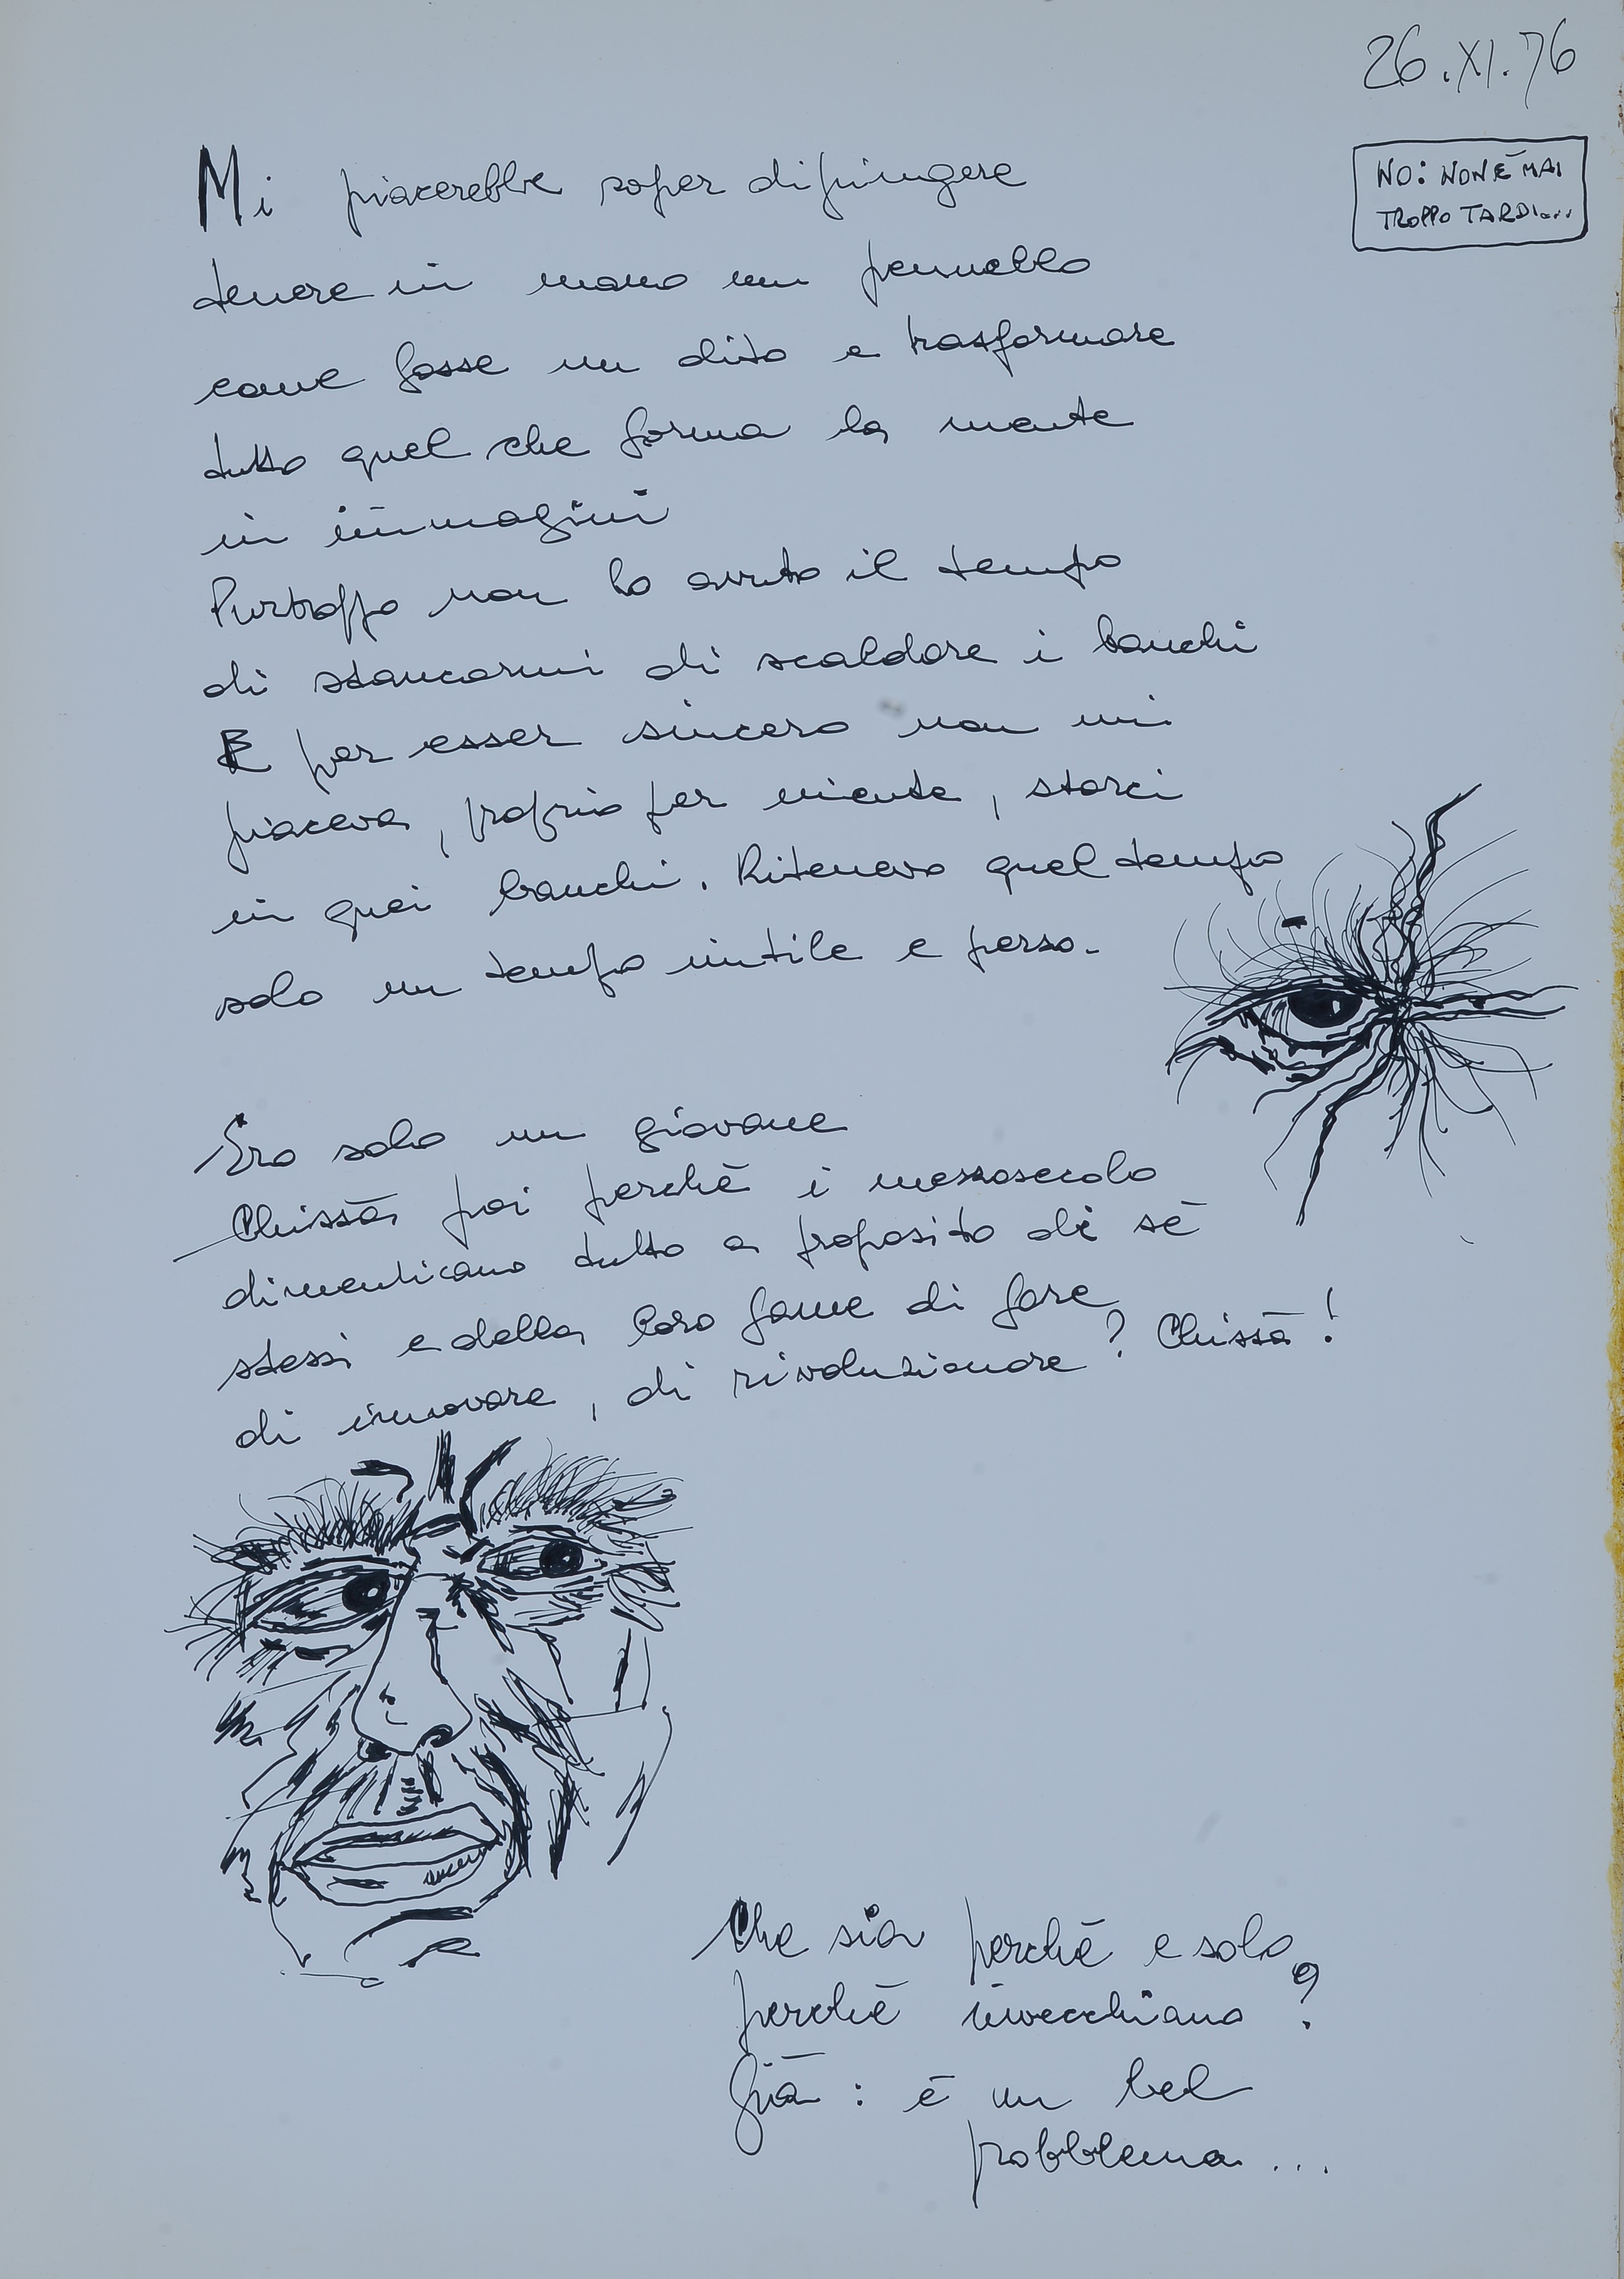 26.XI.76
NO: NON È MAI
TROPPO TARDI...
Mi piacerebbe saper dipingere
tenere in mano un pennello
come fosse un dito e trasformare
tutto quel che forma la mente
in immagini
Purtroppo non ho avuto il tempo
di stancarmi di scaldare i banchi
E per esser sincero non mi
piaceva, proprio per niente, starci
in quei banchi. Ritenevo quel tempo
solo un tempo inutile e perso.
Ero solo un giovane
Chissà poi perchè i mezzosecolo
dimenticano tutto a proposito di sè
stessi e della loro fame di fare
di innovare, di rivoluzionare? Chissà!
Che sia perchè e solo
perchè invecchiano?
Già: è un bel
probblema...